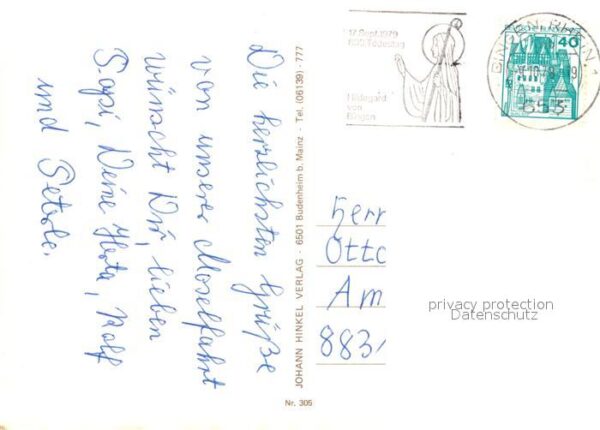 Die herzlichsten Grüße
von unserer Moselfahrt
wünscht Dir, lieben
Sepi, Deine Herta, Rolf
und
JOHANN HINKEL VERLAG · 6501 Budenheim b. Mainz · Tel. (06139) · 777
Nr. 305
17. Sept. 1979
800. Todestag
Hildegard
von
Bingen
BINGEN, RHEIN 1
40
Herr
Otto
Am
883
privacy protection
Datenschutz